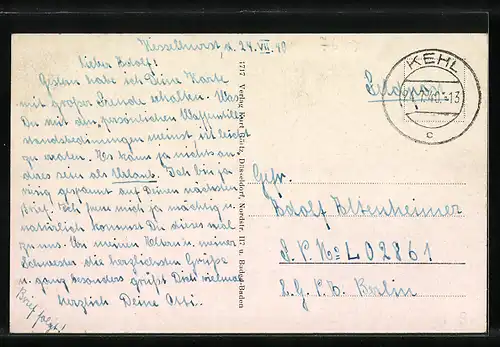 Hesselhurst, d. 24. VII. 40
Lieber Adolf!
Gestern habe ich Deine Karte
mit großer Freude erhalten. Was
Du mit den persönlichen Waffenstill-
standsbedinungen meinst ist leicht
zu eraten. Es kann ja nichts an-
dres sein als Urlaub. Ich bin ja
riesig gespannt auf Deinen nächsten
Brief. Ich freue mich ja mächtig u.
natürlich kommst Du dieses mal
zu uns. Von meinen Eltern u. meiner
Schwester die herzlichsten Grüße
u. ganz besonders grüßt Dich vielmals
Herzlich Deine
Brief folgt!
1717 Verlag Kurt Düsseldorf, Nordstr. 117 u. Baden-Baden
KEHL
24.7.40.-13
c
Feldpost
Gefr.
Adolf Altenheimer
F.P. No L 02861
L.G.P.A. Berlin